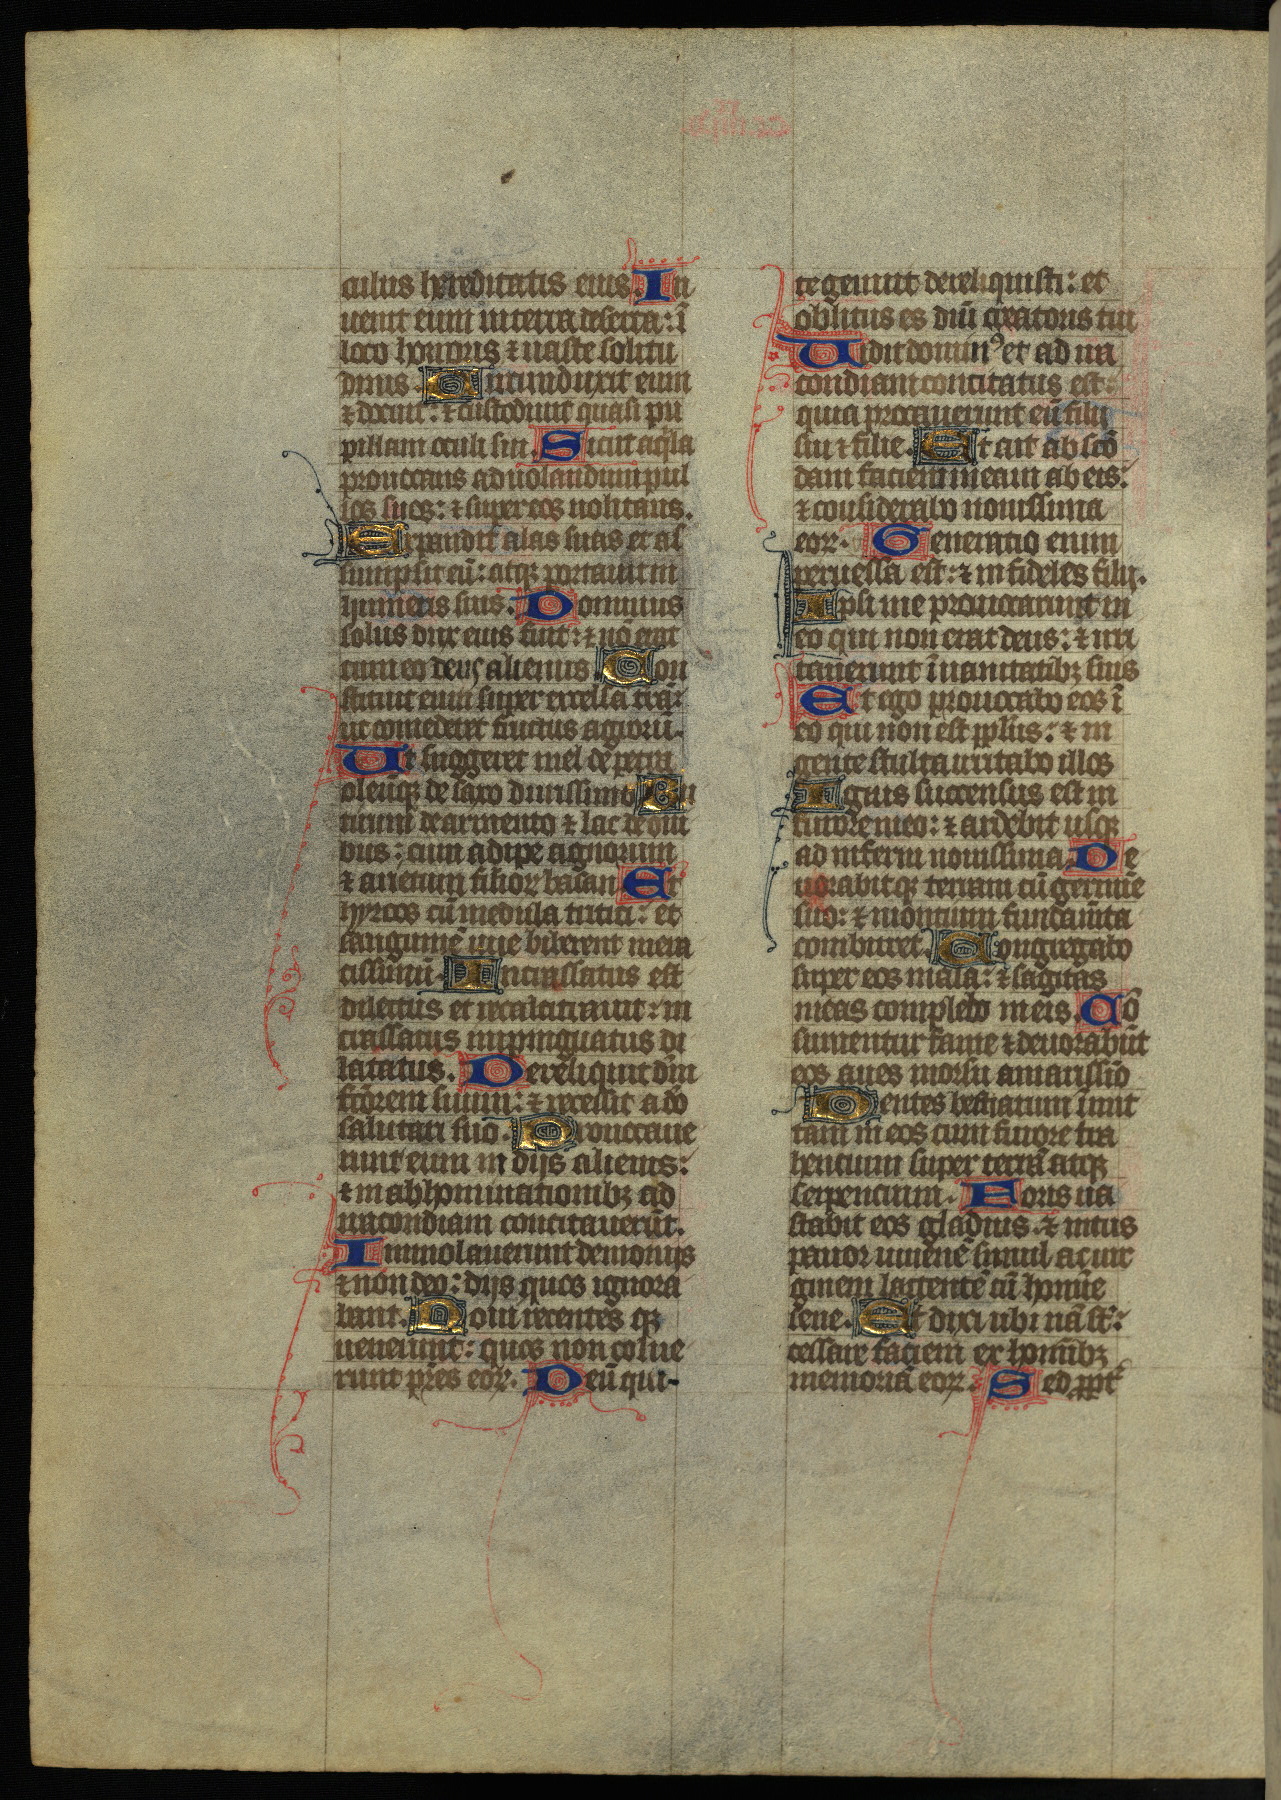 culus hereditatis eius. In
uenit eum in terra deserta: ī
loco horroris ⁊ uaste solitu
dinis. Circunduxit eum
⁊ docuit: ⁊ custodiuit quasi pu
pillam oculi sui. Sicut aq̄la
prouocans ad uolandum pul
los suos: ⁊ super eos uolitans.
Expandit alas suas et as
sumpsit eū: atqꝫ portauit in
humeris suis. Dominus
solus dux eius fuit: ⁊ nō erat
cum eo deus alienus Con
stituit eum super excelsā terrā:
ut comederet fructus agrorū.
Ut suggeret mel de petra
oleūqꝫ de saxo durissimo Bu
tirum de armento ⁊ lac de oui
bus: cum adipe agnorum
⁊ arietum filioꝝ basan Et
hyrcos cū medula tritici: et
sanguinē uue biberent mera
cissimū. Incrassatus est
dilectus et recalcitrauit: in
crassatus inpinguatus di
latatus. Dereliquit dm̄
fc̄orem suum: ⁊ recessit a dō
salutari suo. Prouocaue
runt eum in dijs alienis:
⁊ in abhominationibꝫ ad
iracondiam concitauerūt.
Immolauerunt demonijs
⁊ non deo: dijs quos ignora
bant. Noui recentes qꝫ
uenerunt: quos non colue
runt pr̄es eoꝝ. Deū qui
te genuit dereliquisti: et
oblitus es dn̄i creatoris tui
Uidit dominꝰ et ad ira
condiam concitatus est:
quia prouocauerunt eū filij
sui ⁊ filie. Et ait absco
dam faciem meam ab eis:
⁊ considerabo nouissima
eoꝝ. Generatio enim
peruersa est: ⁊ infideles filij.
Ipsi me prouocarunt in
eo qui non erat deus: ⁊ irri
tauerunt ī uanitatibꝫ suis
Et ego prouocabo eos ī
eo qui non est pp̄lus: ⁊ in
gente stulta irritabo illos
Ignis succensus est in
furore meo: ⁊ ardebit usqꝫ
ad inferni nouissima De
uorabitqꝫ terram cū germīe
suo: ⁊ montium fundam̄ta
comburet. Congregabo
super eos mala: ⁊ sagittas
meas complebo in eis. Cō
sumentur fame ⁊ deuorabūt
eos aues morsu amarissīo
Dentes bestiarum īmit
tam in eos cum furore tra
hentium super terrā atqꝫ
serpentium. Foris ua
stabit eos gladius. ⁊ intus
pauor iuuenē simul ac uir
ginem lactentē cū homīe
sene. Et dixi ubi nā st̄:
cessare faciem ex homībꝫ
memoriā eoꝝ. Sed ꝓpt̄